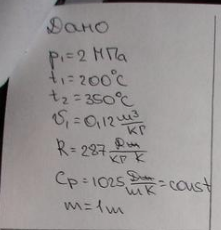 Дано
p₁=2 МПа
t₁=200°C
t₂=350°C
υ₁=0,12 м³/кг
R=287 Дж/кг К
Cp=1025 Дж/кг К=const
m=1т